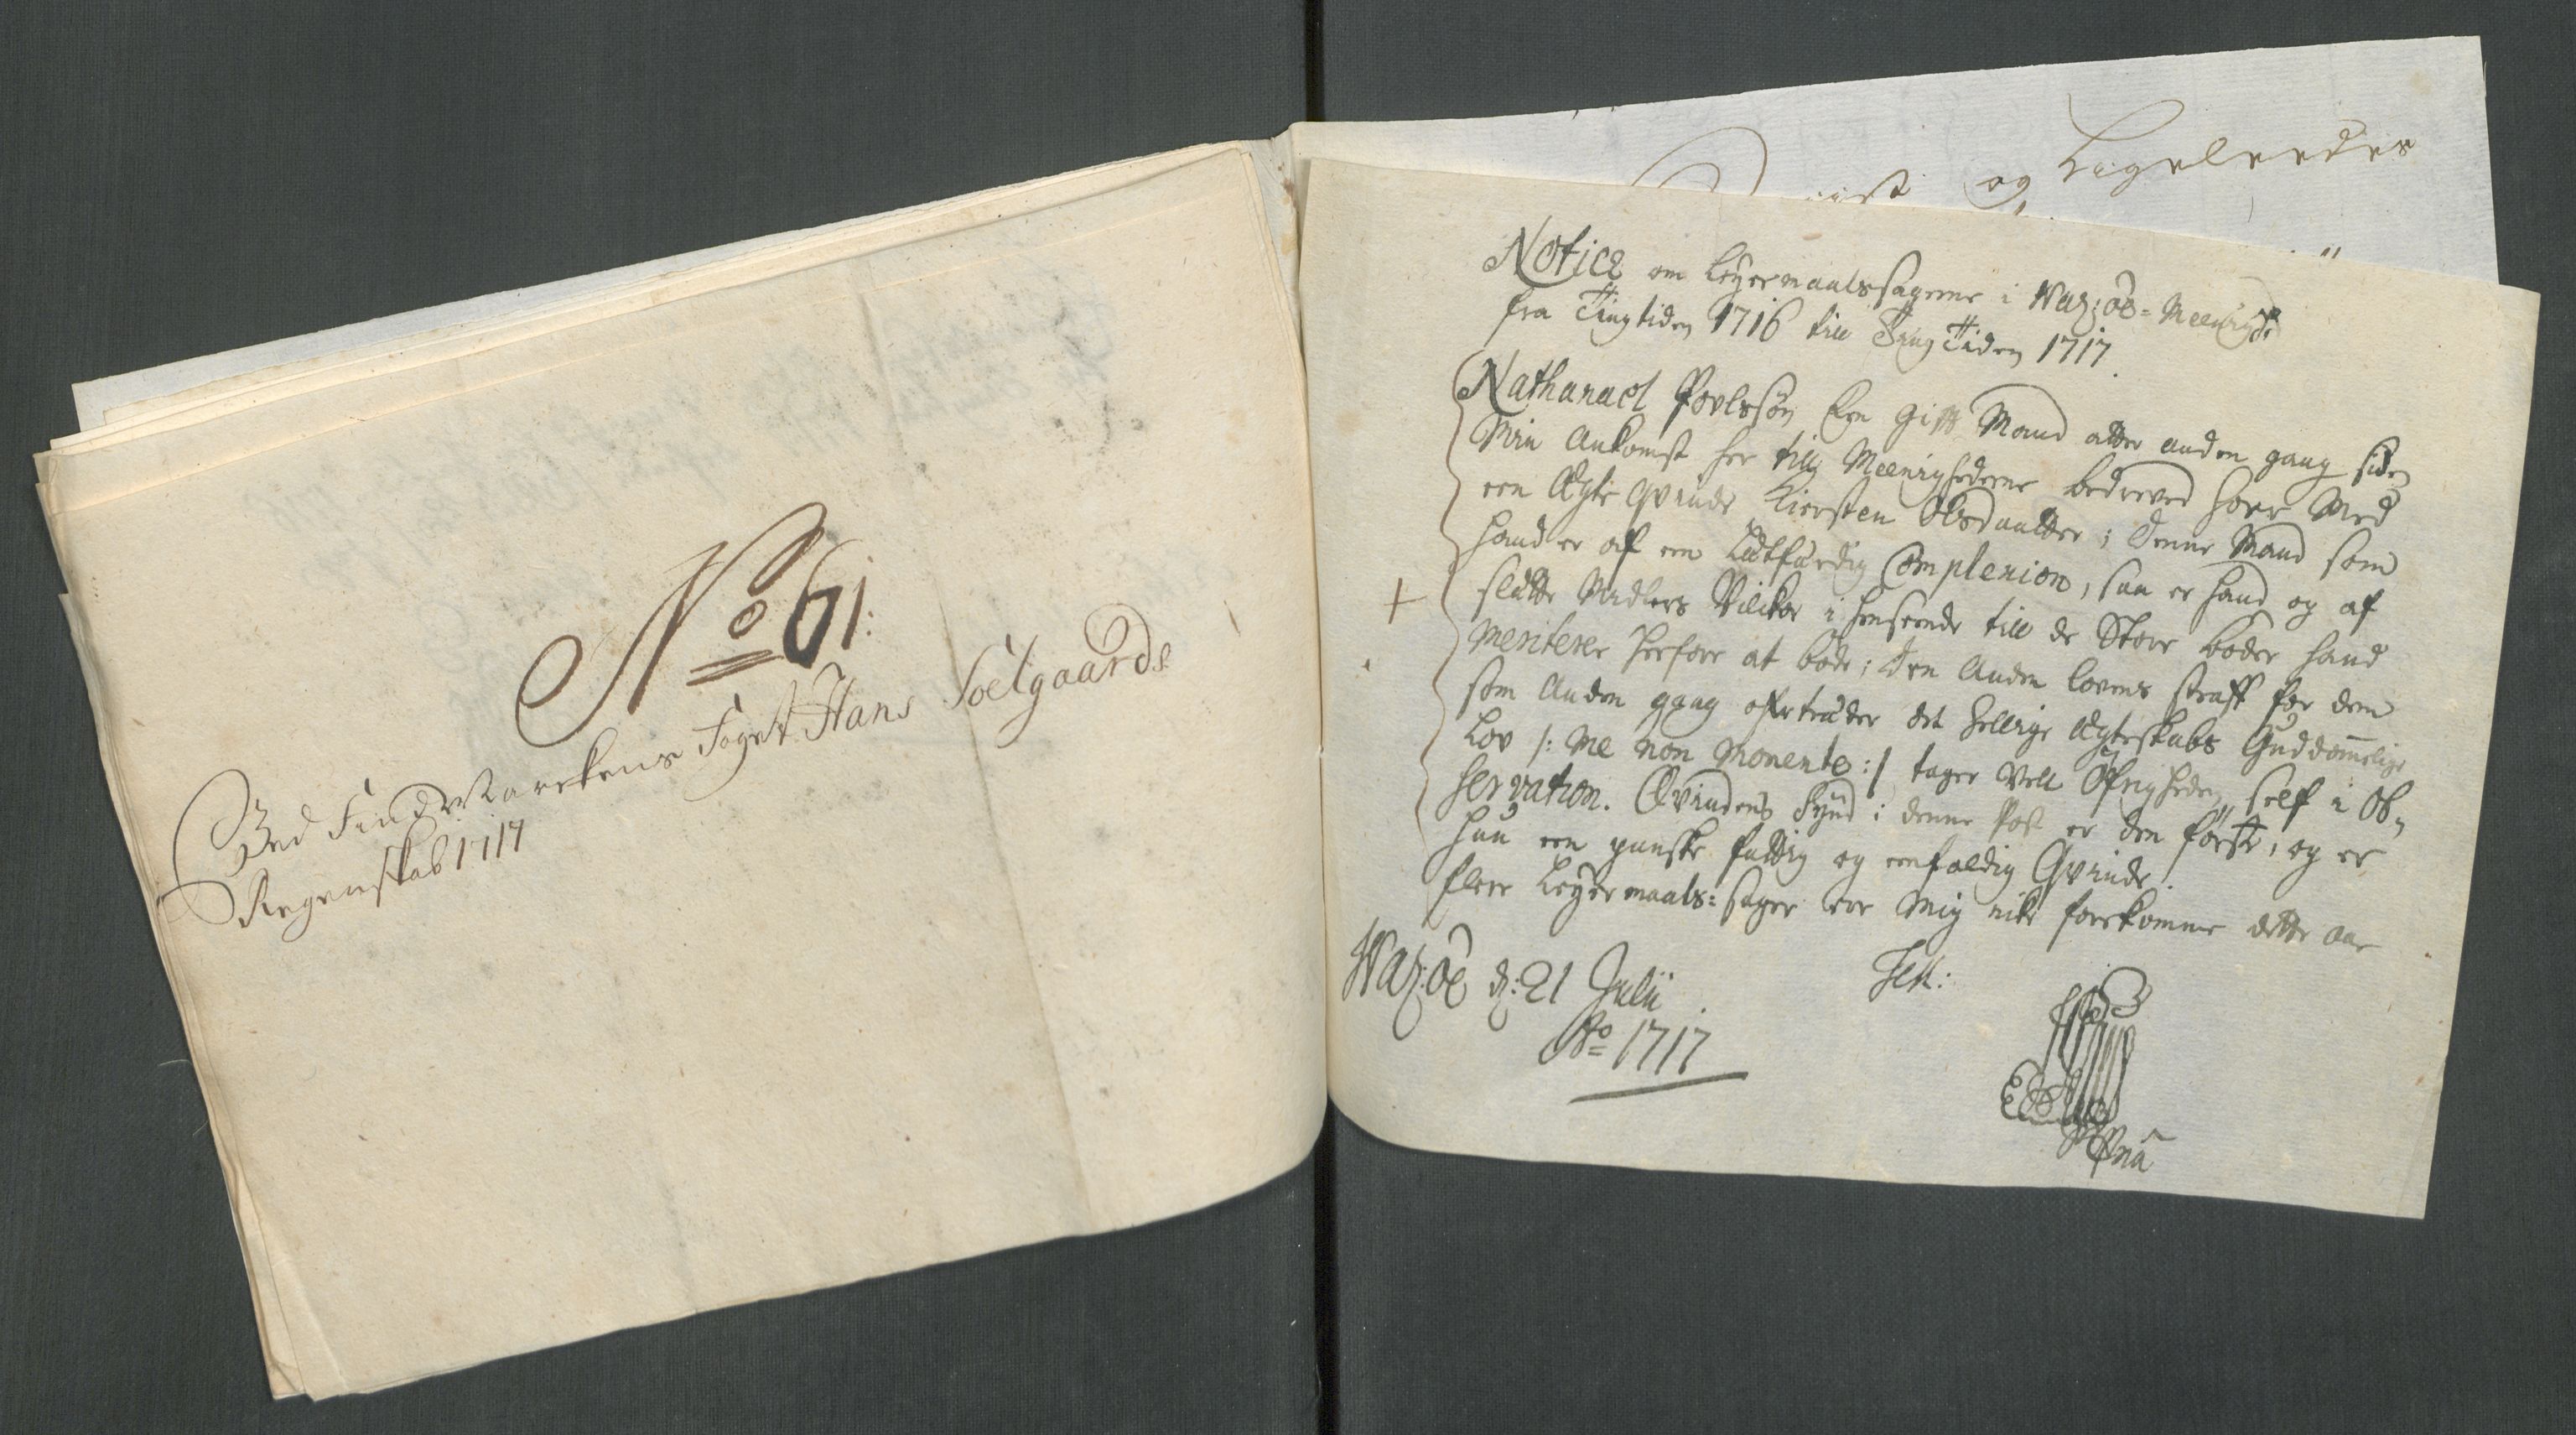 No 61:
Ved Findmarckens Foget Hans Soelgaards
Regenskab 1717
og Ligeleedes
Notice om Leyermaalssagerne i Wadsøe-Meenighed
fra Tingtiden 1716 till Ting Tiden 1717.
Nathanael Povlssøn Een Gift Mand atter anden gang siden
Min Ankomst her till Meenighederne bedreved hoer Med
een Ægte Qvinde Kiersten Olsdaatter; Denne Mand som
hand er af een Letfærdig Complexion, saa er hand og af
slette Midlers Vilckor i henseende till de Store bøder hand
Meriterer herfore at bøde; Den Anden Lovens straff for dem
som Anden gang ofvertræder det hellige Ægteskabs Guddommelige
Lov /: Me non Monente :/ tager Vell Øfrigheden self i Ob-
servation. Qvindens Synd i denne Post er den første, og er
hun een ganske fattig og eenfoldig Qvinde.
fleere Leyermaals-sager ere Mig icke forekomne dette Aar
Test:
d: 21 Julii
Ao 1717